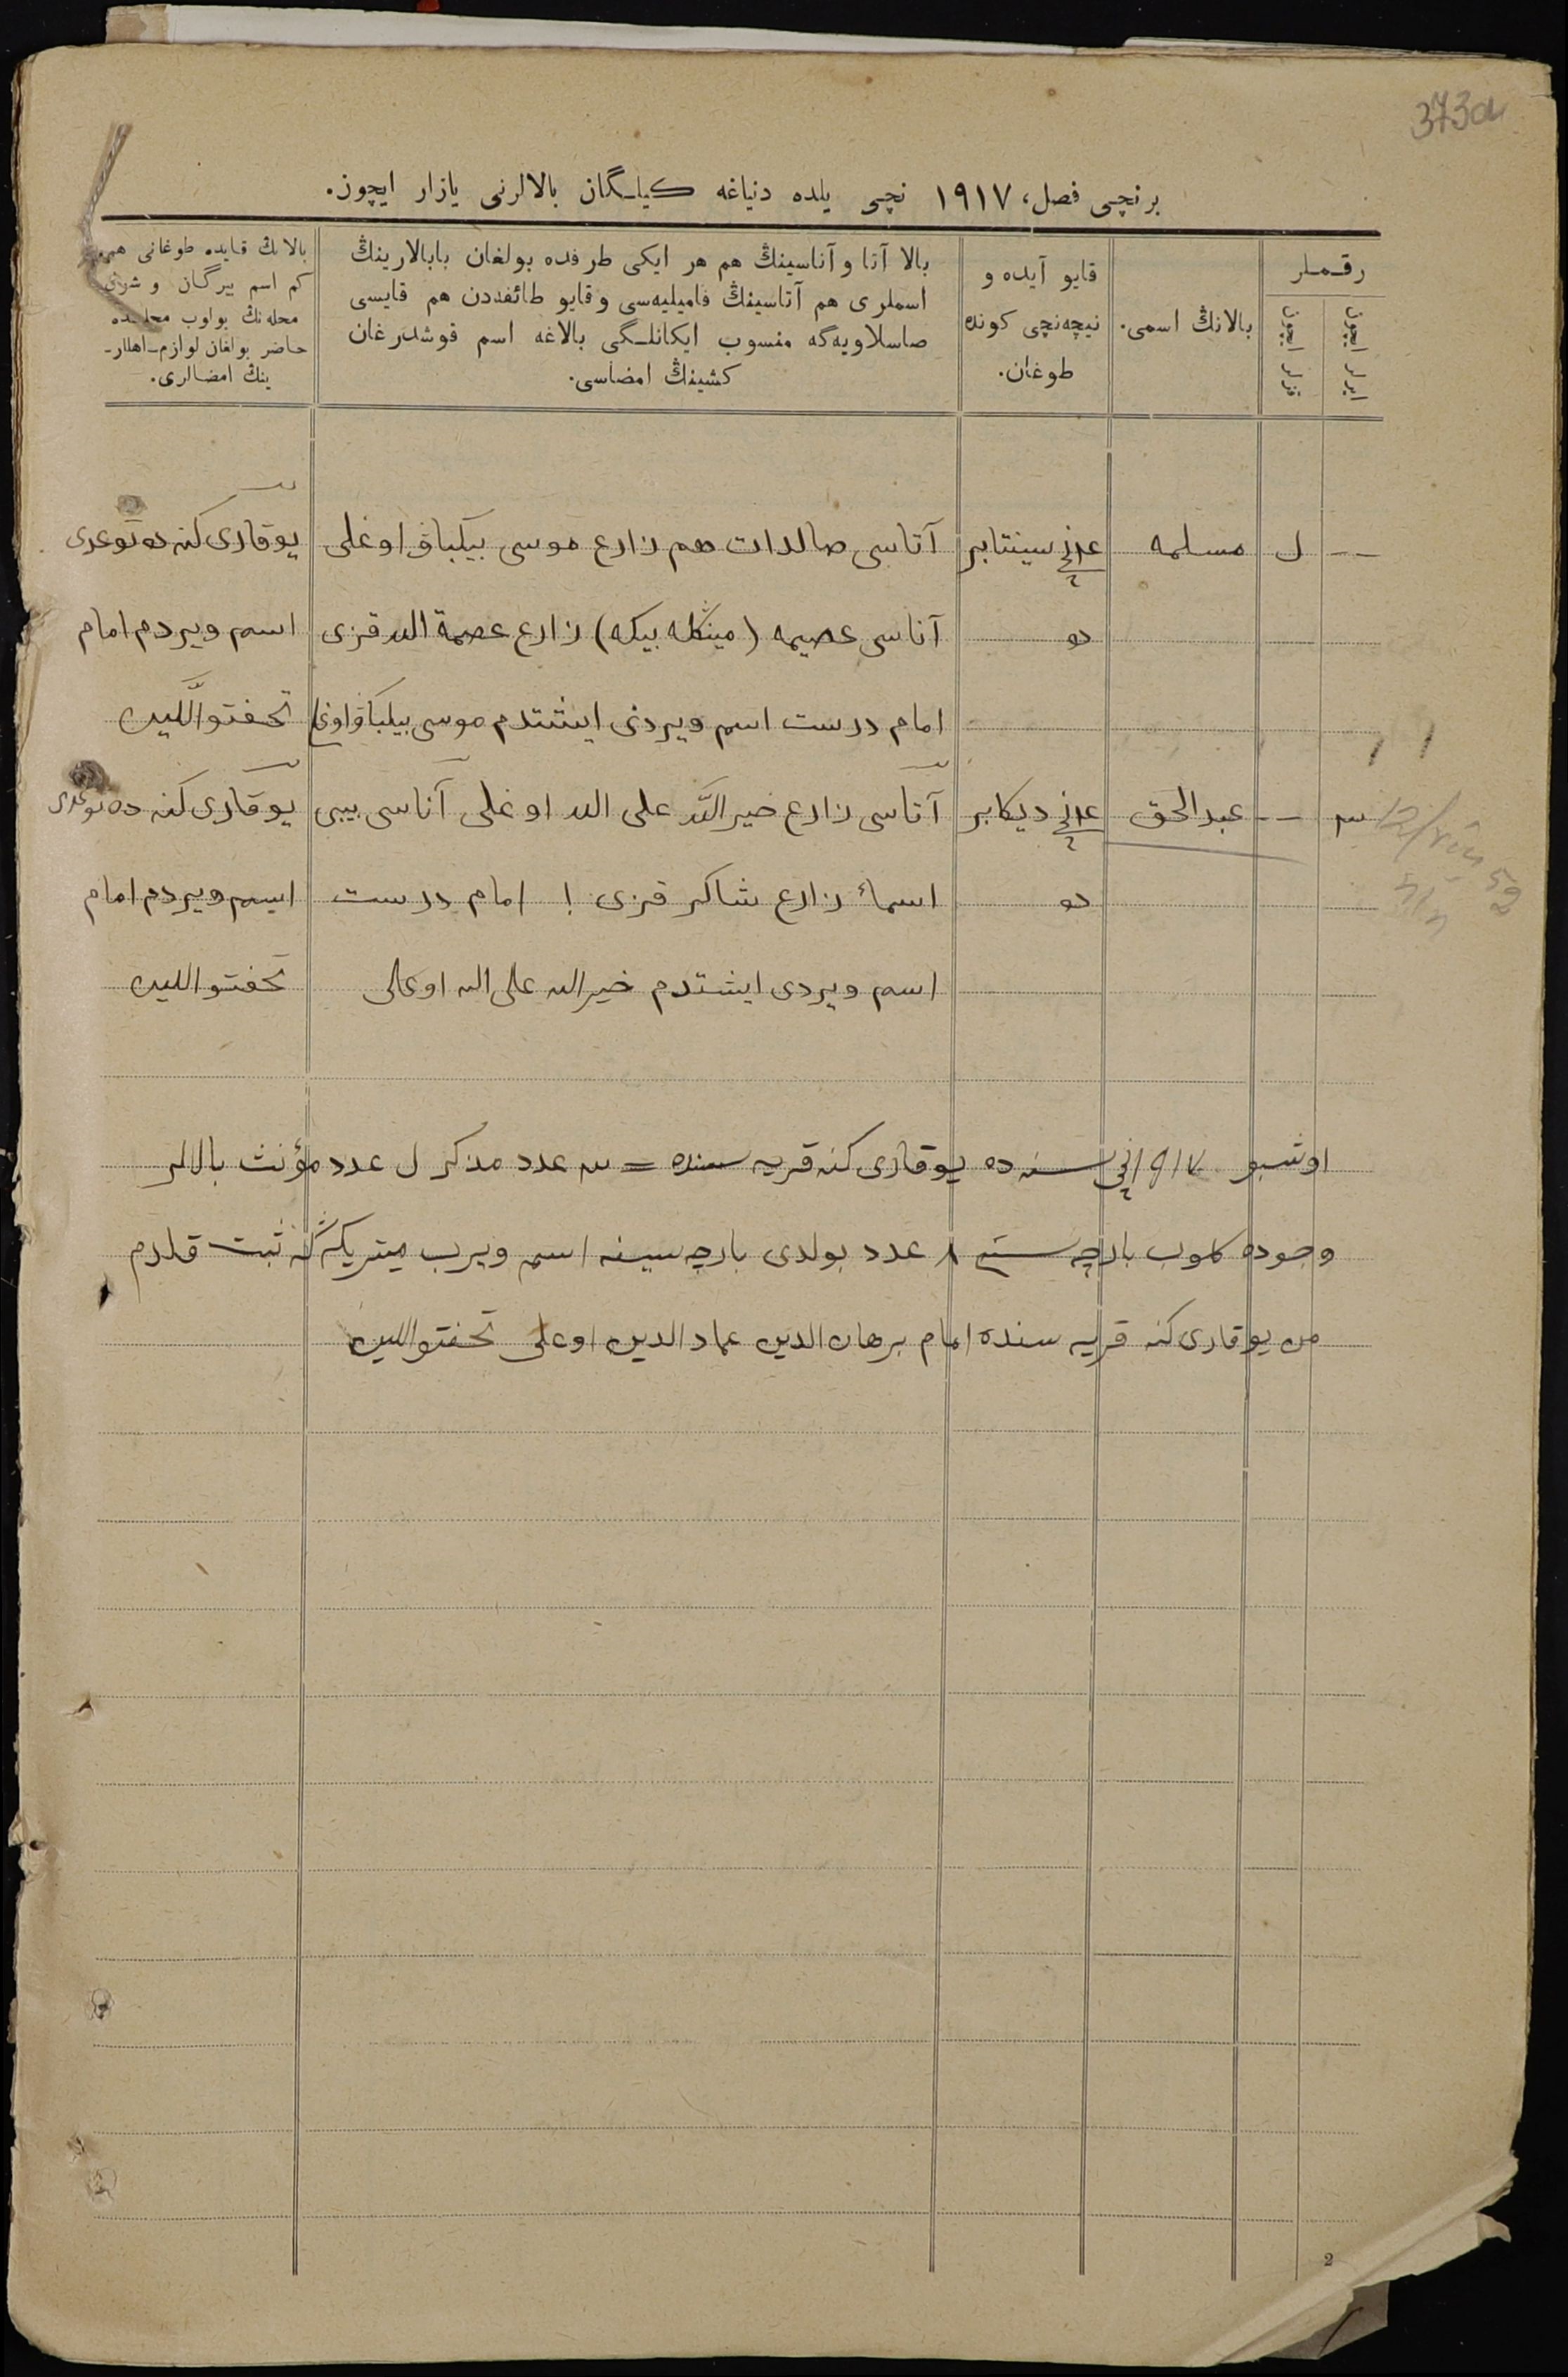 373a
برنچی فصل، ١٩١٧ نچی یلده دنیاغه کیلگان بالالرنی یازار ایچون.
رقملر
ایرلر ایچون
قزلر ایچون
بالانڭ اسمی.
قایو آیده و
نیچه‌نچی کونده
طوغان.
بالا آتا و آناسینڭ هم هر ایکی طرفده بولغان بابالارینڭ
اسملری هم آتاسینڭ فامیلیه‌سی و قایو طائفه‌دن هم قایسی
صاسلاویه‌گه منسوب ایکانلگی بالاغه اسم قوشدرغان
کشینڭ امضاسی.
بالانڭ قایده طوغانی هم
کم اسم بیرگان و شونڭ
محله‌نڭ بولوب محله‌ده
حاضر بولغان لوازم اهللر
ینڭ امضالری.
مسلمه
سینتابر
آتاسی صالدات هم زارع موسی بیکباف اوغلی
یوقاری کنه ده توغدی
آناسی عصیمه (مینکله بیکه) زارع عصمة الله قزی
اسم ویردم امام
امام درست اسم ویردی ایشتدم موسی بیکباف اوغلی
تحفتوالین
عبدالحق
دیکابر
آتاسی زارع خیرالله علی الله اوغلی آناسی بیبی
یوقاری کنه ده توغدی
اسماء زارع شاکر قزی ! امام درست
اسم ویردم امام
اسم ویردی ایشتدم خیرالله علی الله اوغلی
تحفتوالین
اوشبو ١٩١٧ نچی سنه ده یوقاری کنه قریه سنده = عدد مذکر عدد مؤنث بالالر
وجوده کلوب بارچه سی ٨ عدد بولدی بارچه سینه اسم ویرب میتریکه گه ثبت قلدم
من یوقاری کنه قریه سنده امام برهان الدین عماد الدین اوغلی تحفتوالین
2